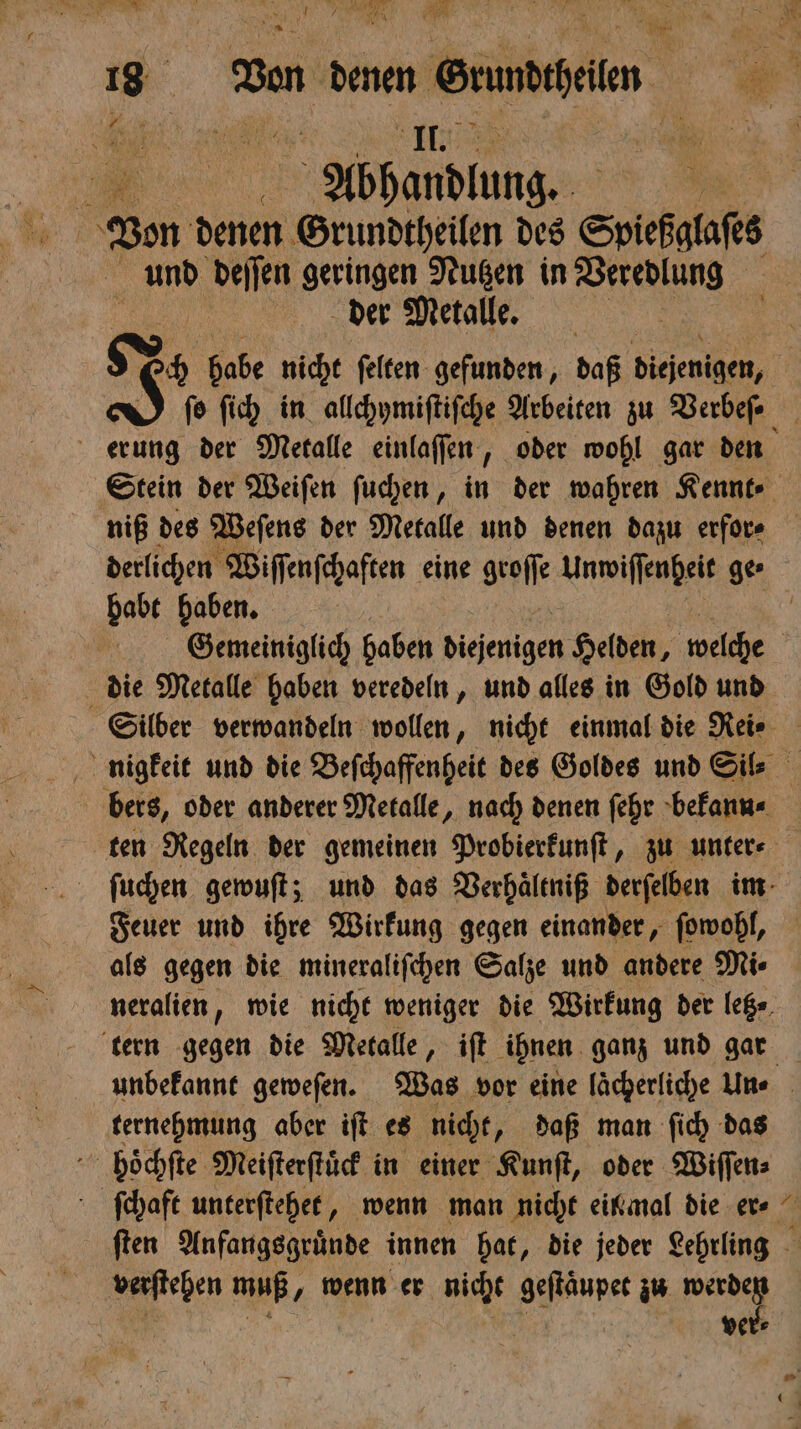 18 Von denen Grundtheilen
II.
Abhandlung.
Von denen Grundtheilen des Spießglaſes
und deſſen geringen Nutzen in Veredlung
der Metalle.
Ich habe nicht ſelten gefunden, daß diejenigen,
ſo ſich in allchymiſtiſche Arbeiten zu Verbeſ⸗
erung der Metalle einlaſſen, oder wohl gar den
Stein der Weiſen ſuchen, in der wahren Kennt⸗
niß des Weſens der Metalle und denen dazu erfor⸗
derlichen Wiſſenſchaften eine groſſe Unwiſſenheit ge⸗
habt haben.
Gemeiniglich haben diejenigen Helden, welche
die Metalle haben veredeln, und alles in Gold und
Silber verwandeln wollen, nicht einmal die Rei⸗
nigkeit und die Beſchaffenheit des Goldes und Sil⸗
bers, oder anderer Metalle, nach denen ſehr bekann⸗
ten Regeln der gemeinen Probierkunſt, zu unter⸗
ſuchen gewuſt; und das Verhaͤltniß derſelben im
Feuer und ihre Wirkung gegen einander, ſowohl,
als gegen die mineraliſchen Salze und andere Mi⸗
neralien, wie nicht weniger die Wirkung der letz⸗
tern gegen die Metalle, iſt ihnen ganz und gar
unbekannt geweſen. Was vor eine laͤcherliche Un⸗
ternehmung aber iſt es nicht, daß man ſich das
hoͤchſte Meiſterſtuͤck in einer Kunſt, oder Wiſſen⸗
ſchaft unterſtehet, wenn man nicht einmal die er⸗
ſten Anfangsgruͤnde innen hat, die jeder Lehrling
verſtehen muß, wenn er nicht geſtaͤupet zu werden
ver⸗